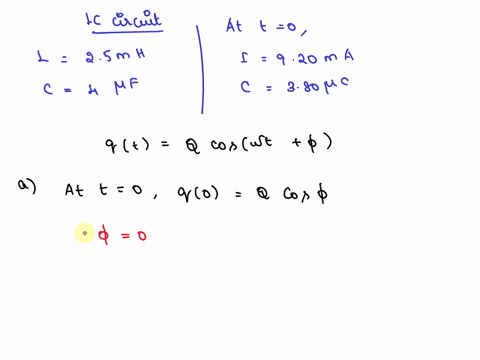 LC circuit
L = 2.5 mH
C = 4 μF
At t = 0,
I = 9.20 mA
C = 3.80 μC
q(t) = Q cos(ωt + ϕ)
a) At t = 0, q(0) = Q cos ϕ
ϕ = 0